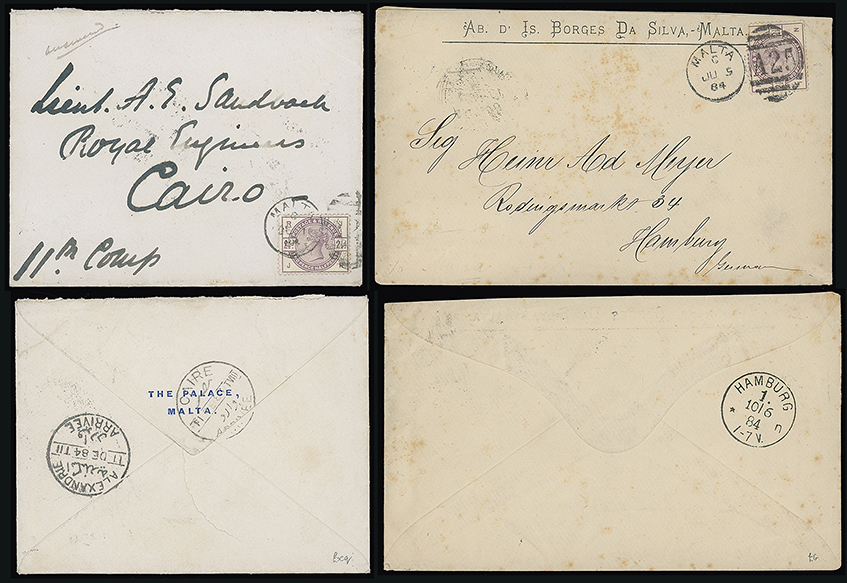 answered
Lieut. A. E. Sandbach
Royal Engineers
Cairo
11th Comp
MALTA
2½ 2½
J
AB. D' IS. BORGES DA SILVA,-MALTA.
MALTA
C
JU 5
84
A25
N
Sig Heinr Ad Meyer
Rödingsmarkt 34
Hamburg
German
THE PALACE,
MALTA.
CAIRE
ARRIVEE
ALEXANDRIE
11 DE 84 T11
ARRIVEE
HAMBURG
1.
10/6
84
1-7V.